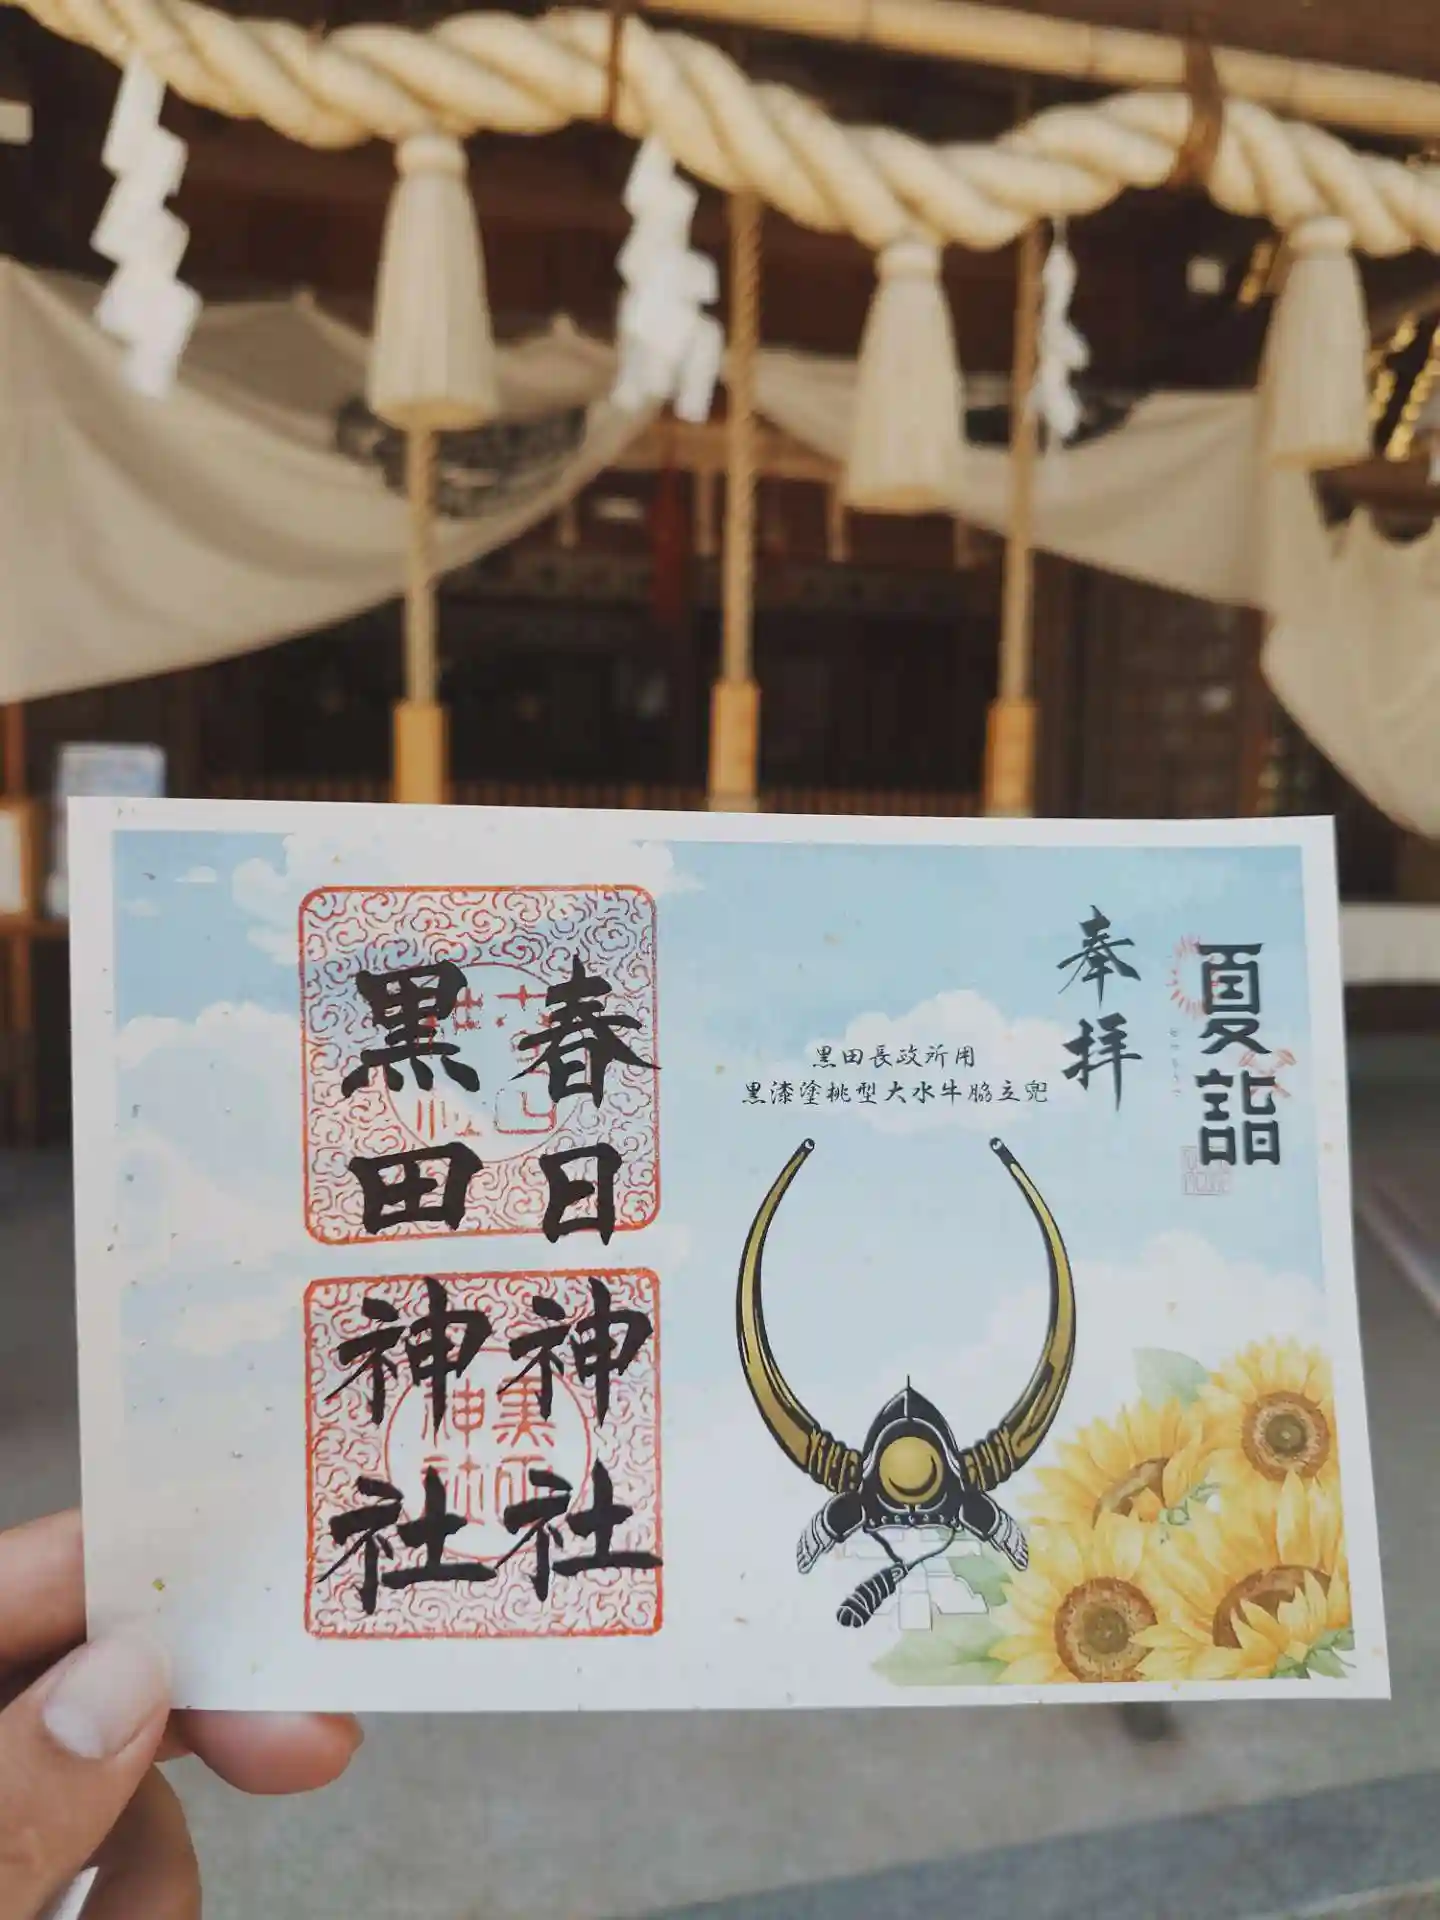 夏詣
奉拝
黒田長政所用
黒漆塗桃型大水牛脇立兜
春日神社
黒田神社